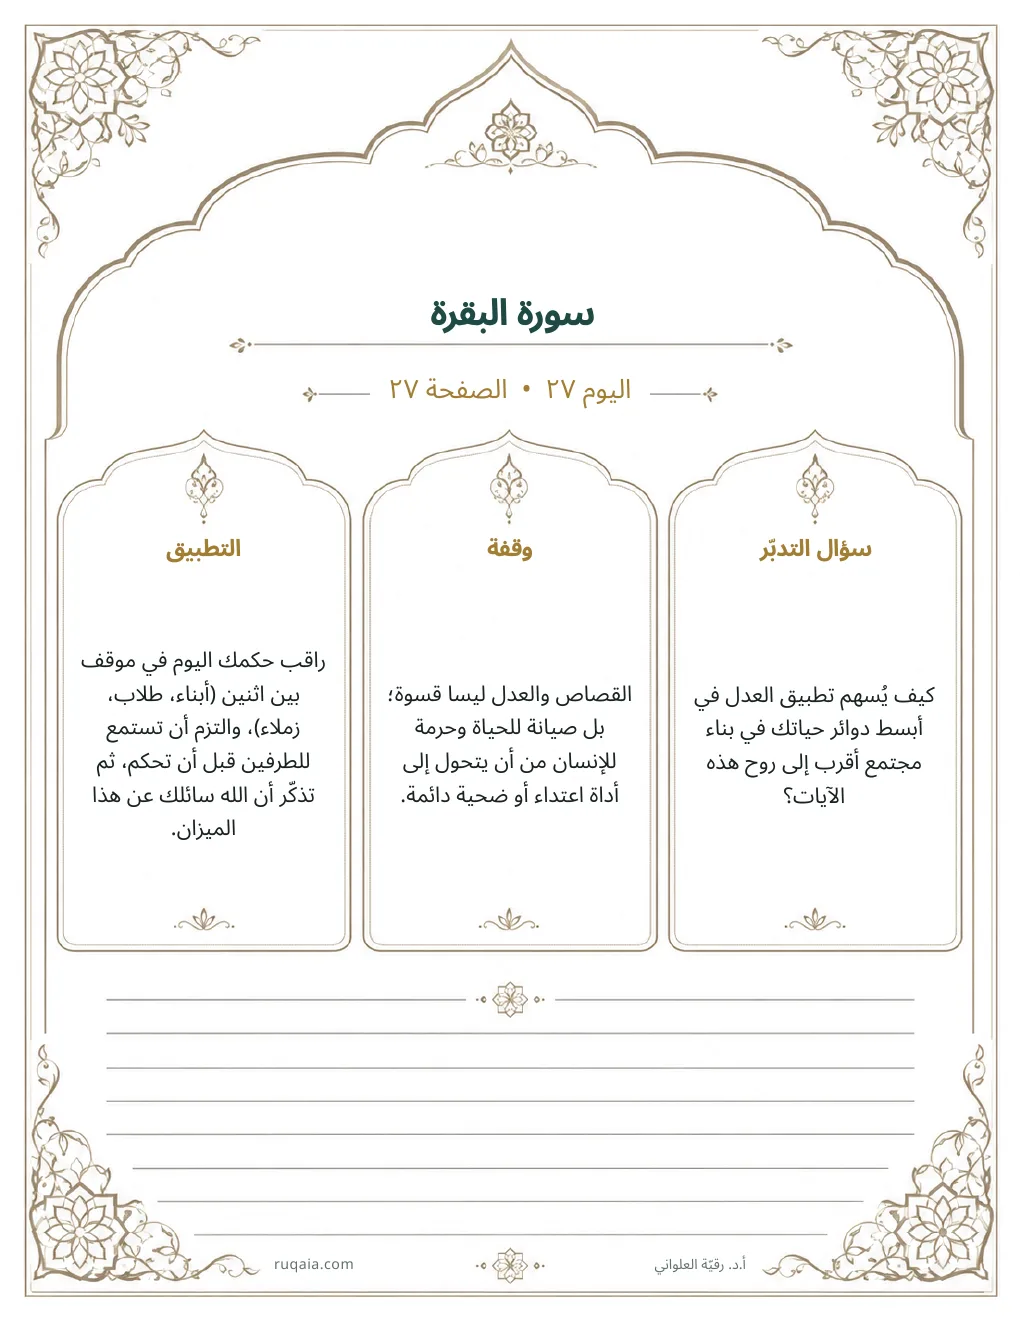 سورة البقرة
اليوم ٢٧ • الصفحة ٢٧
سؤال التدبّر
كيف يُسهم تطبيق العدل في
أبسط دوائر حياتك في بناء
مجتمع أقرب إلى روح هذه
الآيات؟
وقفة
القصاص والعدل ليسا قسوة؛
بل صيانة للحياة وحرمة
للإنسان من أن يتحول إلى
أداة اعتداء أو ضحية دائمة.
التطبيق
راقب حكمك اليوم في موقف
بين اثنين (أبناء، طلاب،
زملاء)، والتزم أن تستمع
للطرفين قبل أن تحكم، ثم
تذكّر أن الله سائلك عن هذا
الميزان.
أ.د. رقيّة العلواني
ruqaia.com